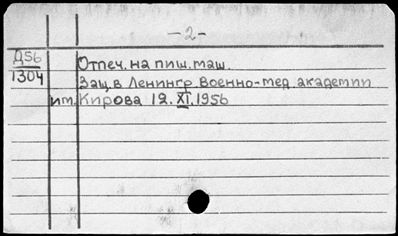 -2-
Д56
1304
Отпеч. на пиш. маш.
Защ. в Ленингр. Военно-мед. академии
им. Кирова 12.XI.1956